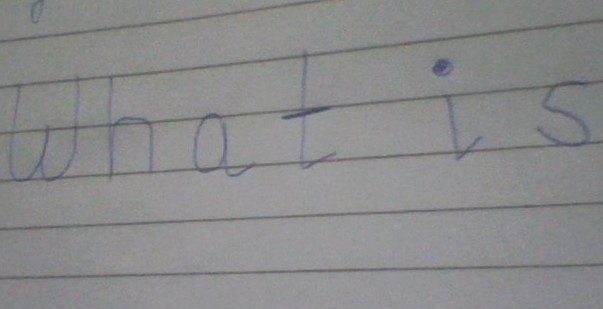 What is